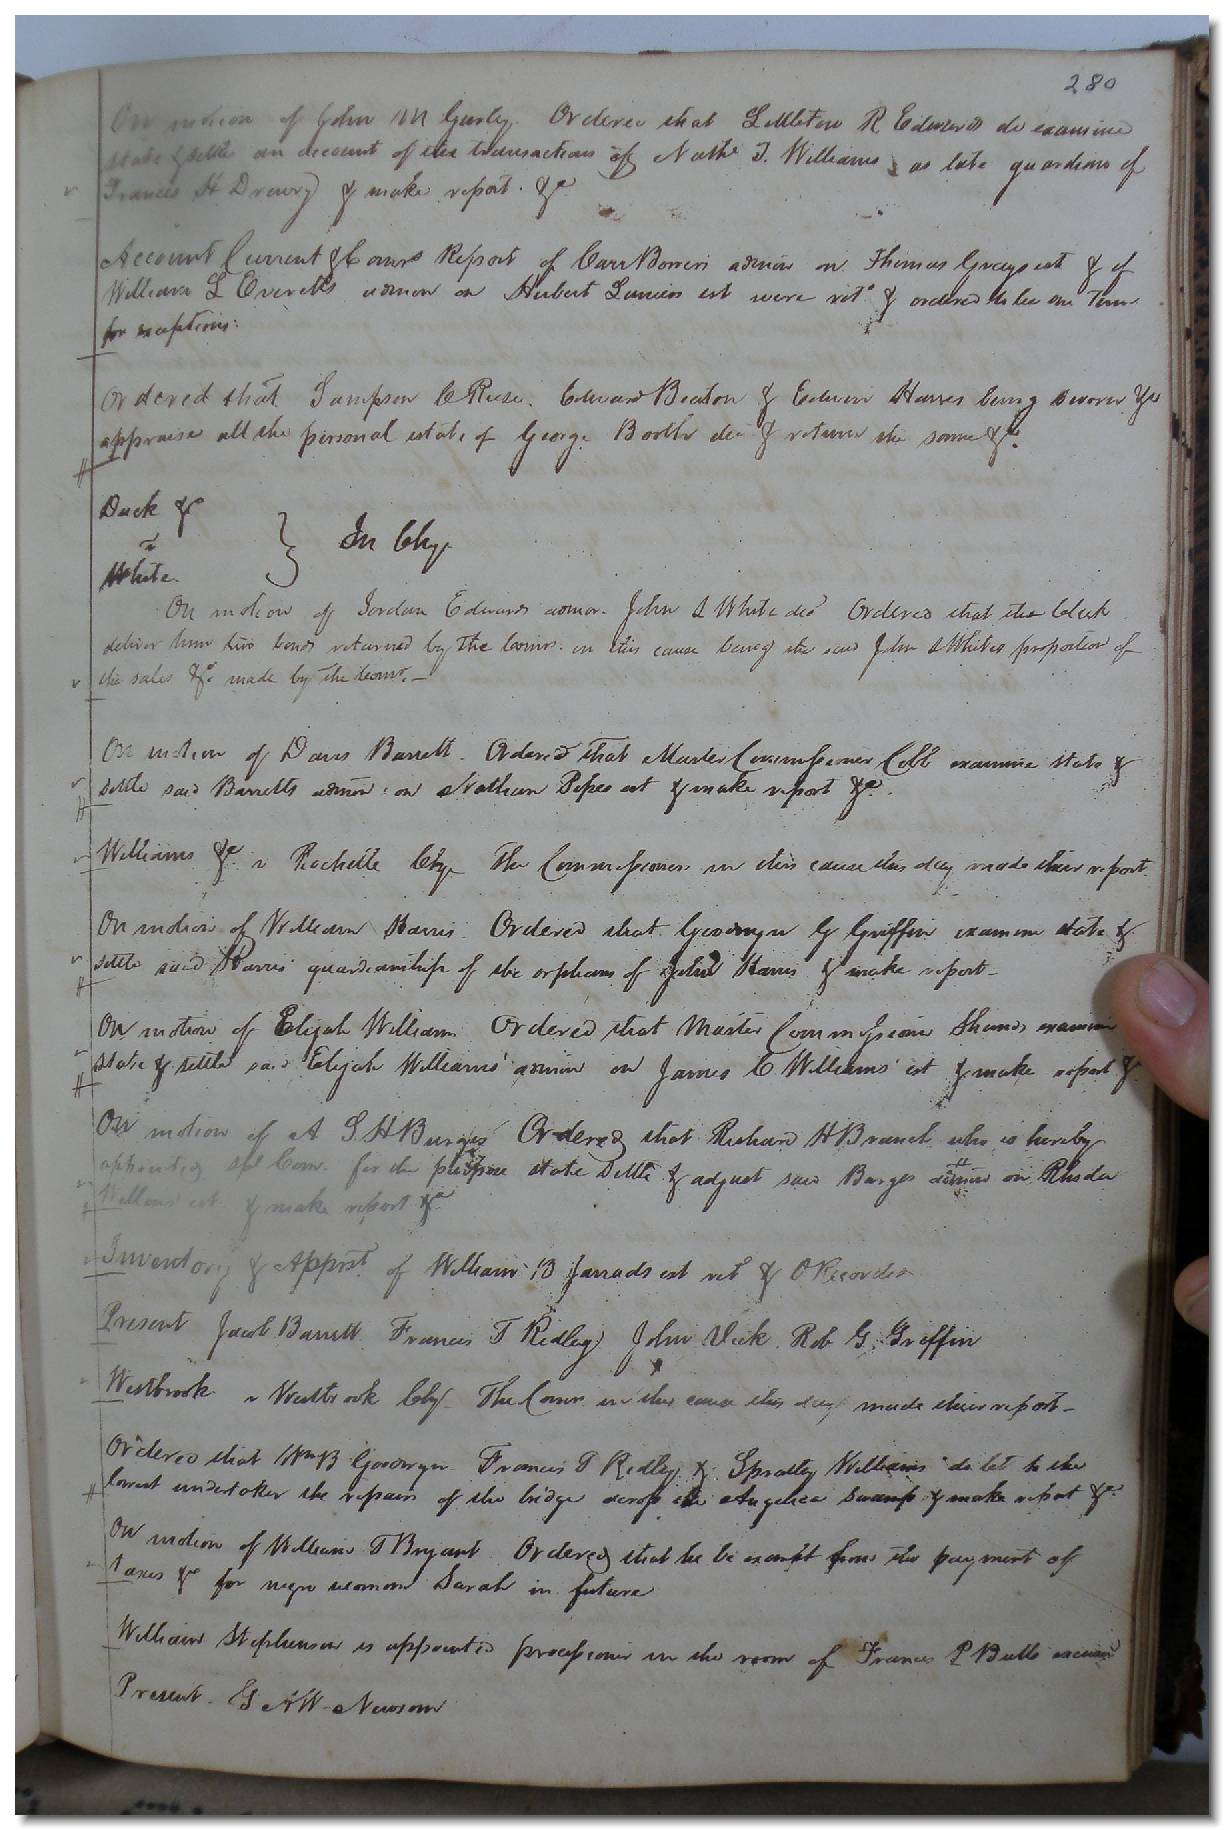 280
On motion of John M Gurley. Ordered that Littleton R Edwards do examine
state & settle an account of the transactions of Nathl T. Williams as late guardian of
Francis H Drewry & make report. &c
Account Current & Comrs Report of Carr Bowers admin on Thomas Grays est & of
William L Everetts admon on Herbert est were retd & ordered to lie one Term
for exceptions.
Ordered that Sampson C Reese. Edward Beaton & Edwin Harris being sworn &c
appraise all the personal estate of George Booth decd & return the same &c.
Duck &c
v
White.
} In Chy
On motion of Jordan Edwards admor. John S White decd Ordered that the Clerk
deliver him two bonds returned by the Comrs. in this cause being the said John S Whites proportion of
the sales &c. made by the Comrs. —
On motion of Davis Barrett. Ordered that Master Commissioner Cobb examine state &
settle said Barretts admin: on Nathan Popes est & make report &c.
Williams &c v Rochelle Chy The Commissioners in this cause this day made their report
On motion of William Harris Ordered that Goodwyn G Griffin examine state &
settle said Harris' guardianship of the orphans of John Harris & make report —
On motion of Elijah Williams Ordered that Master Commissioner Shands examine
state & settle said Elijah Williams' admin on James C Williams' est & make report &
On motion of A S. H Burges Ordered that Richard H Branch who is hereby
appointed spl Com. for the purpose state settle & adjust said Burges admin on Rhoda
Williams' est & make report &c
Inventory & Appst. of William B Jarrads est retd & O Recorded
Present Jacob Barrett Francis T Ridley John Vick. Rob G. Griffin
Westbrook v Westbrook Chy. The Comrs in this cause this day made their report —
Ordered that Wm B Goodwyn Francis T Ridley & Spratley Williams do let to the
lowest undertaker the repairs of the bridge across the Angelica Swamp & make report &c
On motion of William T Bryant Ordered that he be exempt from the payment of
Taxes &c for negro woman Sarah in future
William Stephenson is appointed processioner in the room of Francis P Butts excused
Present. G A W Newsom